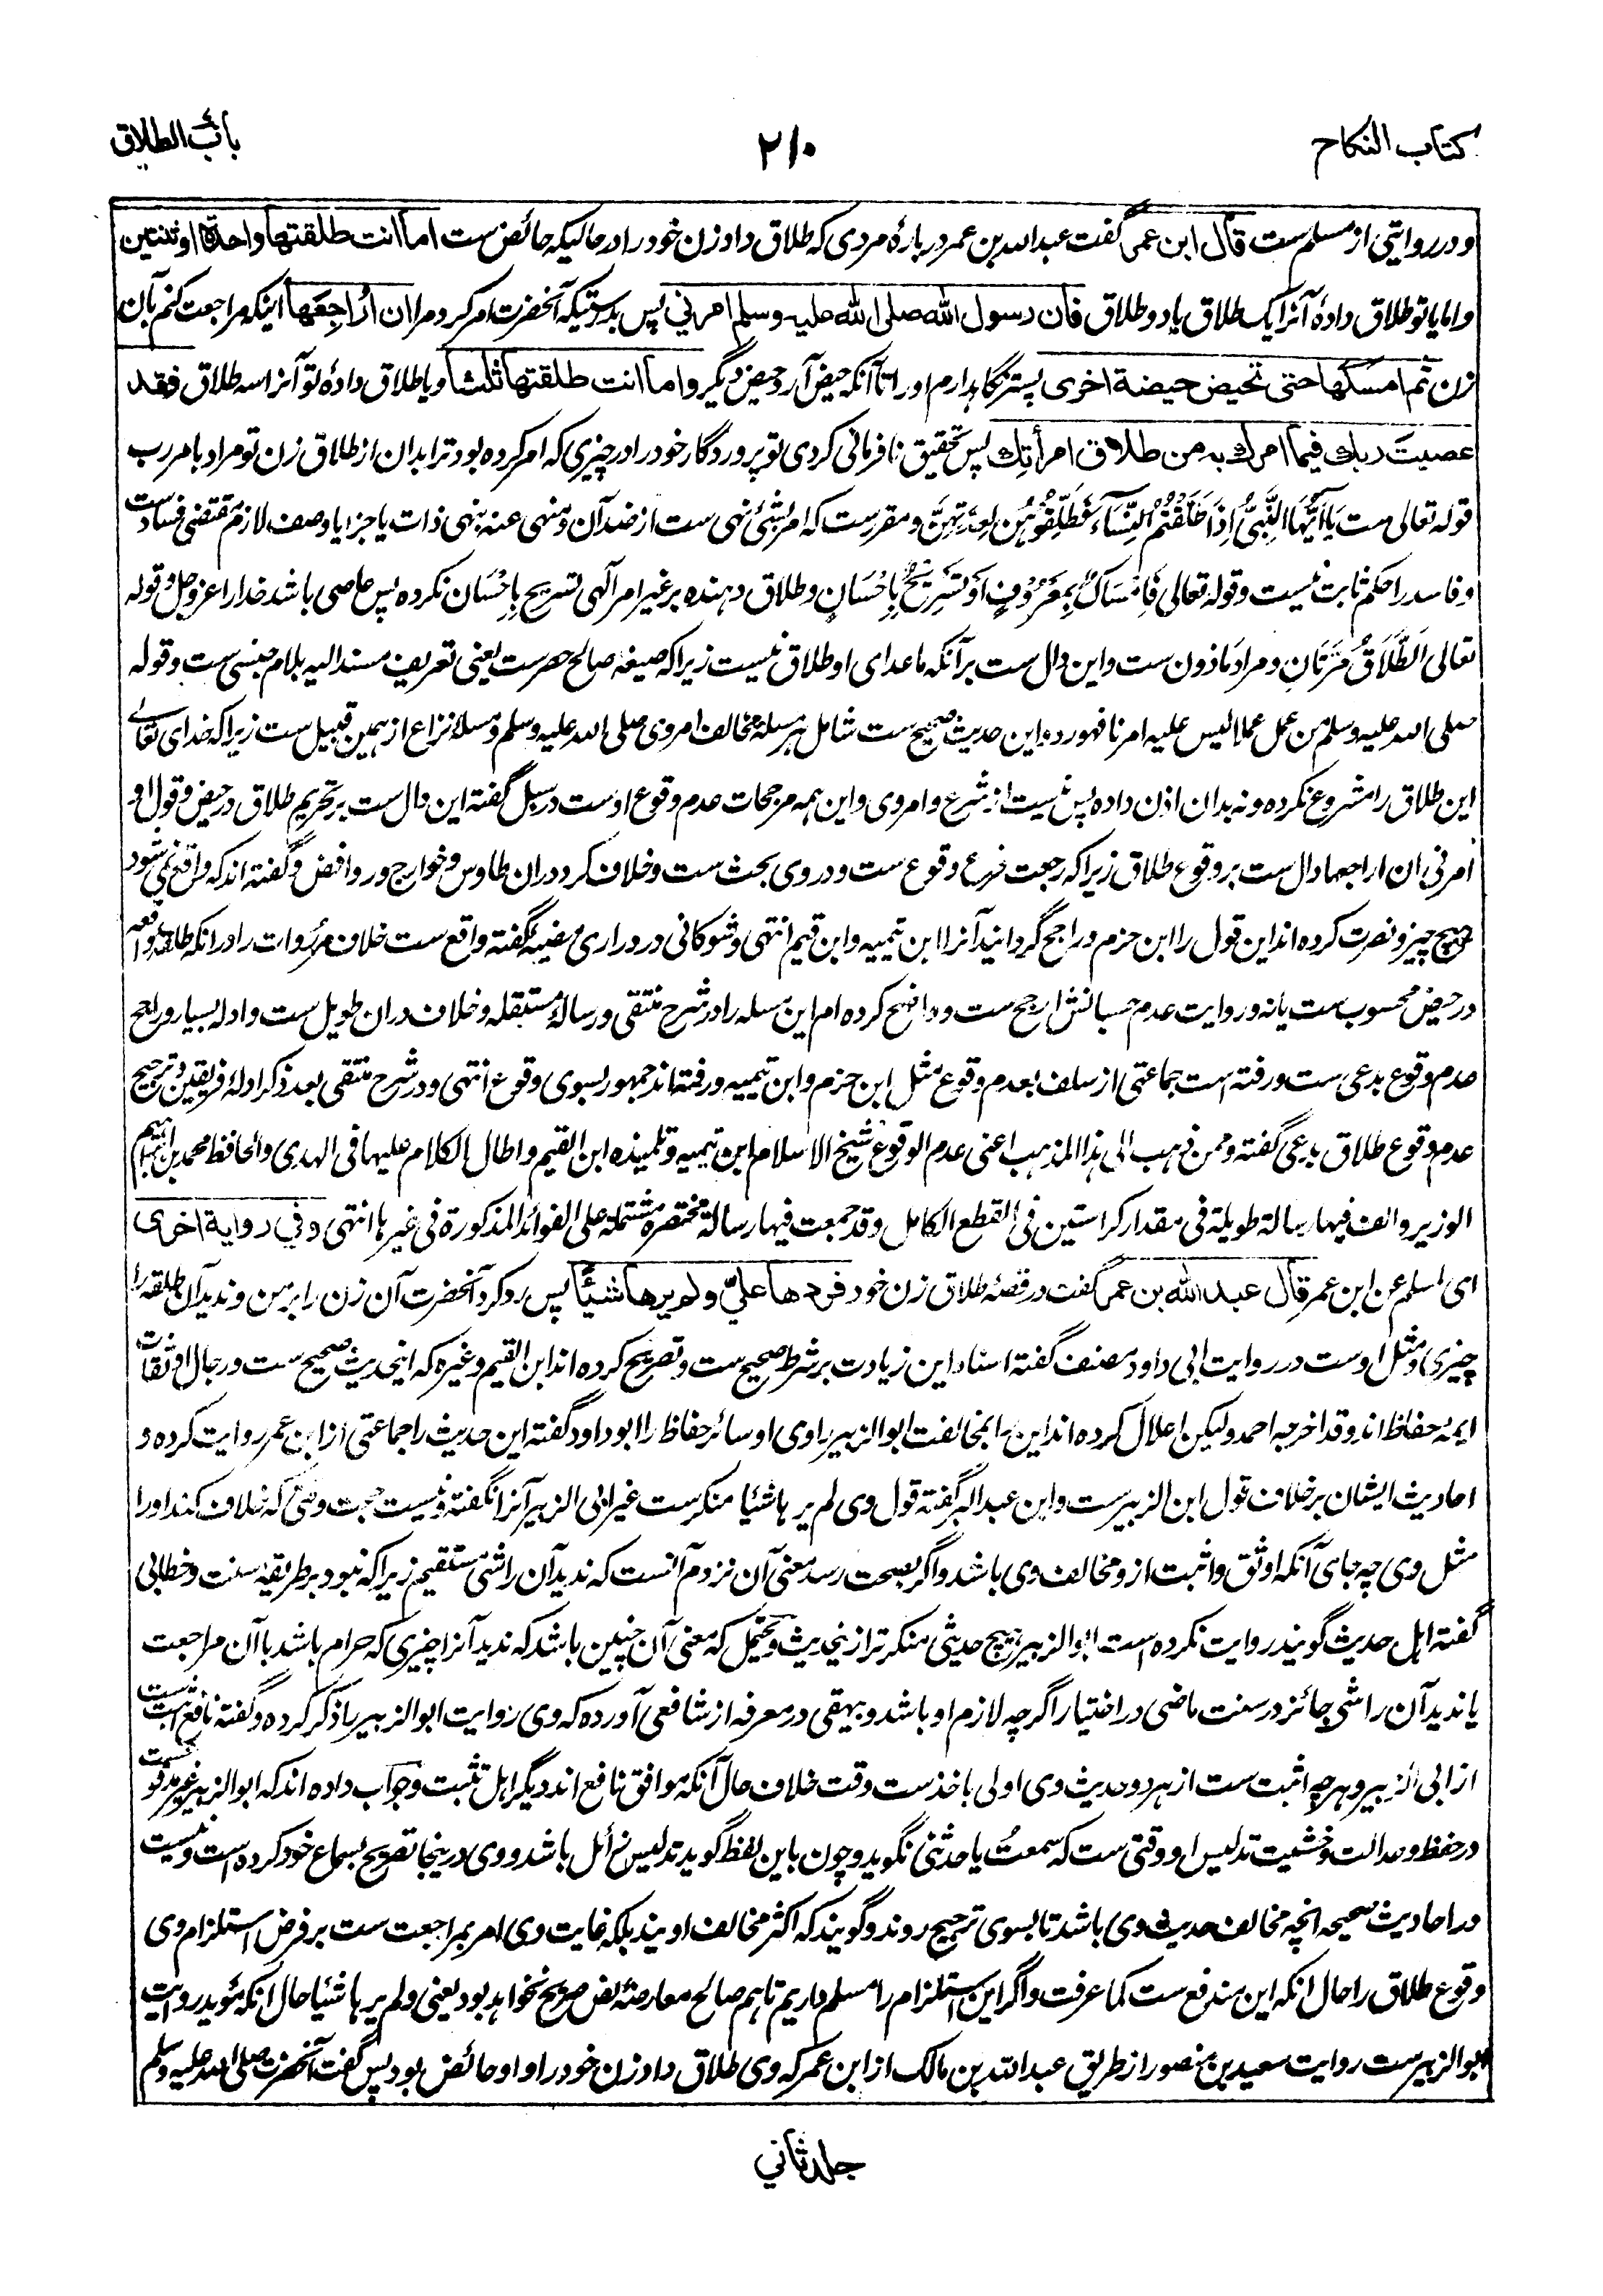 کتاب النکاح
۲۱۰
بابُ الطلاق
و در روایتی از مسلم ست قال ابن عمر گفت عبدالله بن عمر درباره مردی که طلاق داد زن خود را در حالیکه حائض ست اما انت طلقتها واحدة او ثنتین
و اما یا تو طلاق داده آنرا یک طلاق یا دو طلاق فان رسول الله صلی الله علیه وسلم امرنی پس بدرستیکه آنحضرت امر کرد مرا ان اراجعها اینکه مراجعت کنم بآن
زن ثم امسکها حتی تحیض حیضة اخری پستر نگاہدارم او را تا آنکه حیض آرد حیض دیگر و اما انت طلقتها ثلثا و یا طلاق داده تو آنرا سه طلاق فقد
عصیت ربك فیما امرك به من طلاق امرأتك پس بتحقیق نافرمانی کردی تو پروردگار خود را در چیزی که امر کرده بود ترا بدان از طلاق زن تو مراد بامر رب
قوله تعالی ست یَا اَیُّهَا النَّبِیُّ اِذَا طَلَّقْتُمُ النِّسَآءَ فَطَلِّقُوْهُنَّ لِعِدَّتِهِنَّ و مقررست که امر بشئ نهی ست از ضد آن و منهی عنه بنهی ذات یا جزا یا وصف لازم مقتضی فسادست
و فاسد را حکم ثابت نیست و قوله تعالی فَاِمْسَاكٌ بِمَعْرُوْفٍ اَوْ تَسْرِیْحٌ بِاِحْسَانٍ و طلاق دهنده بر غیر امر آلهی تسریح بِاِحْسَان نکرده پس عاصی باشد خدا را عز و جل و قوله
تعالی اَلطَّلَاقُ مَرَّتَانِ و مراد ماذون ست و این دال ست بر آنکه ماعدای او طلاق نیست زیرا که صیغه صالح حصرست یعنی تعریف مسند الیه بلام جنسی ست و قوله
صلی الله علیه وسلم من عمل عملا لیس علیه امرنا فهو رد و این حدیث صحیح ست شامل هر مسئله مخالف امر وی صلی الله علیه وسلم و مسئله نزاع از همین قبیل ست زیرا که خدای تعالے
این طلاق را مشروع نکرده و نه بدان اذن داده پس نیست از شرع و امر وی و این همه مرجحات عدم وقوع اوست در سبل گفته این دال ست بر تحریم طلاق در حیض و قول او
امرنی ان اراجعها دال ست بر وقوع طلاق زیرا که رجعت فرع وقوع ست و در وی بحث ست و خلاف کرد در ان طاوس و خوارج و روافض و گفته اند که واقع نمی شود
هیچ چیز و نصرت کرده اند این قول را ابن حزم و راجح گردانید آنرا ابن تیمیه و ابن قیم انتهی و شوکانی در دراری مضیئه گفته واقع ست خلاف مر روات را در انکه طلقه واقعه
در حیض محسوب ست یا نه و روایت عدم حسبانش ارجح ست و واضح کرده ام این مسئله را در شرح منتقی و رسالهٔ مستقله و خلاف دران طویل ست و ادله بسیار و راجح
عدم وقوع بدعی ست و رفته است جماعتی از سلف بعدم وقوع مثل ابن حزم و ابن تیمیه و رفته اند جمهور بسوی وقوع انتهی و در شرح منتقی بعد ذکر ادلهٔ فریقین و ترجیح
عدم وقوع طلاق بدعی گفته و ممن ذهب الی هذا المذهب اعنی عدم الوقوع شیخ الاسلام ابن تیمیه و تلمیذه ابن القیم و اطال الکلام علیها فی الهدی و الحافظ محمد بن ابراهیم
الوزیر و الف فیها رسالة طویلة فی مقدار کراستین فی القطع الکامل و قد جمعت فیها رسالة مختصرة مشتملة علی الفوائد المذکورة فی غیرها انتهی و فی روایة اخری
ای لمسلم عن ابن عمر قال عبد الله بن عمر گفت در قصهٔ طلاق زن خود فردها علیّ و لم یرها شیئًا پس رد کرد آنحضرت آن زن را بر من و ندید آن طلقه را
چیزی و مثل اوست در روایت ابی داود مصنف گفته اسناد این زیادت بر شرط صحیح ست و تصریح کرده اند ابن القیم و غیره که این حدیث صحیح ست و رجال او ثقات
ایمهٔ حفاظ اند و قد اخرجه احمد و لیکن اعلال کرده اند این را بمخالفت ابوالزبیر راوی او سائر حفاظ را ابو داود گفته این حدیث را جماعتی از ابن عمر روایت کرده و
احادیث ایشان بر خلاف قول ابن الزبیرست و ابن عبدالبر گفته قول وی لم یرها شیئا منکرست غیر ابی الزبیر آنرا نگفته و نیست حجت وقتی که خلاف کند او را
مثل وی چه جای آنکه اوثق و اثبت از و مخالف وی باشد و اگر بصحت رسد معنی آن نزدم آنست که ندید آن را شئ مستقیم زیرا که نبود بر طریقهٔ سنت و خطابی
گفته اهل حدیث گویند روایت نکرده است ابوالزبیر هیچ حدیثی منکر تر ازین حدیث و یحتمل که معنی آن چنین باشد که ندید آنرا چیزی که حرام باشد با آن مراجعت
یا ندید آن را شئ جائز در سنت ماضی در اختیار اگرچه لازم او باشد و بیهقی در معرفه از شافعی آورده که وی روایت ابوالزبیر را ذکر کرده و گفته نافع اثبت ست
از ابی الزبیر و هرچه اثبت ست از هر دو حدیث وی اولی باخذ ست وقت خلاف حال آنکه موافق نافع اند دیگر اهل تثبت و جواب داده اند که ابوالزبیر غیر مدفوع ست
در حفظ و عدالت و خشیت تدلیس او وقتی ست که سمعتُ یا حدثنی نگوید و چون باین لفظ گوید تدلیس زائل باشد و وی درینجا تصریح بسماع خود کرده است و نیست
در احادیث صحیحه انچه مخالف حدیث وی باشد تا بسوی ترجیح روند و گویند که اکثر مخالف اویند بلکه غایت وی امر بمراجعت ست بر فرض استلزام وی
وقوع طلاق را حال انکه این مندفع ست کما عرفت و اگر این استلزام را مسلم داریم تاهم صالح معارضهٔ نص صریح نخواهد بود یعنی ولم یرها شیئا حال انکه مؤید روایت
ابوالزبیرست روایت سعید بن منصور از طریق عبدالله بن مالک از ابن عمر که وی طلاق داد زن خود را و او حائض بود پس گفت آنحضرت صلی الله علیه وسلم
جلد ثانی